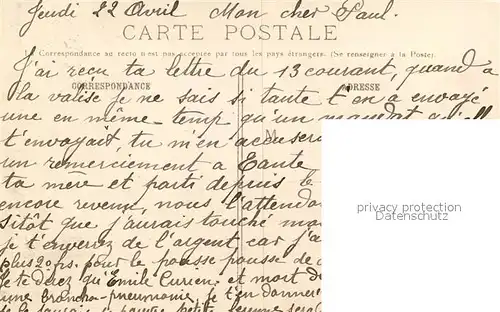 Jeudi 22 Avril Mon cher Paul.
CARTE POSTALE
La Correspondance au recto n'est pas acceptée par tous les pays étrangers. (Se renseigner à la Poste).
J'ai reçu ta lettre du 13 courant, quand a
CORRESPONDANCE ADRESSE
la valise je ne sais si tante t'en a envoyé
une en même temp qu'un mandat
t'envoyait, tu m'en accuser
M
un remerciement a Tante
ta mère et parti depuis le
encore revenu, nous l'attendo
sitôt que j'aurais touché mo
je t'enverrez de l'argent, car j'a
plus 20 frs. pour le pousse pousse de
Je te direz qu'Emile et mort d
une broncho-pneumonie, je t'en donner
pauvre petite femme
privacy protection
Datenschutz